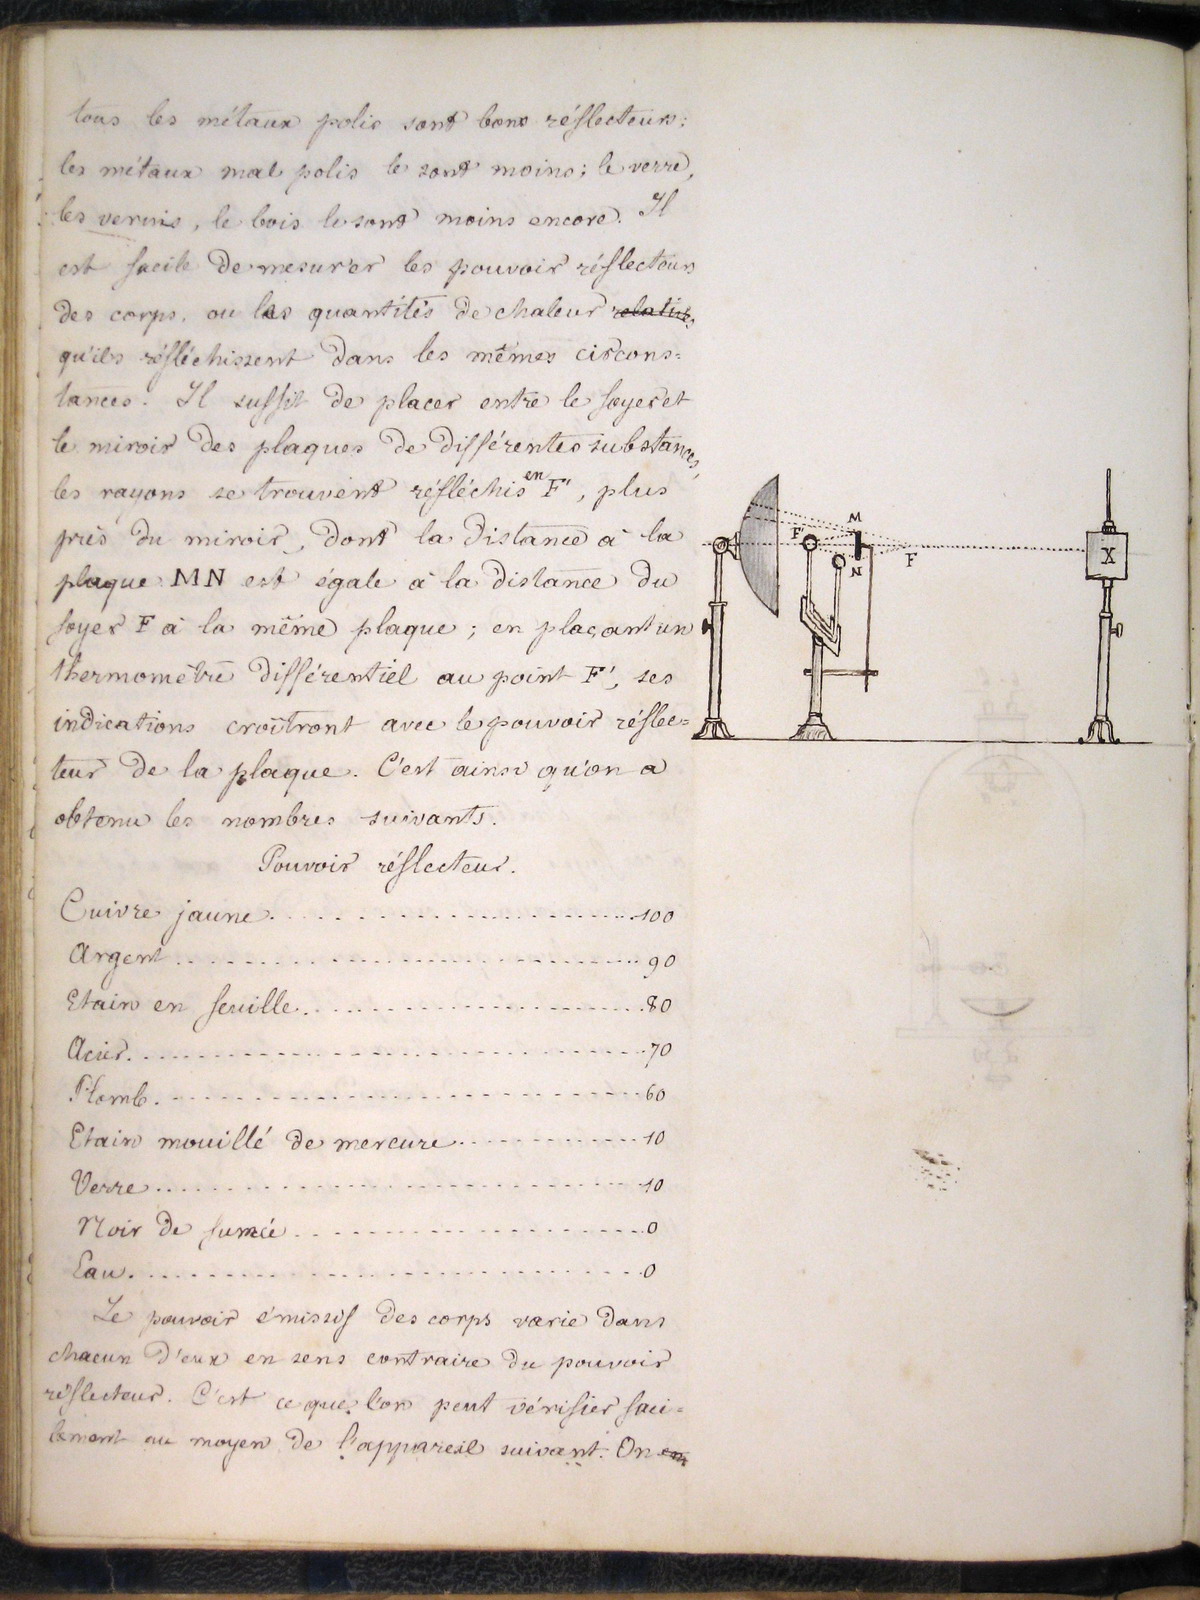 tous les métaux polis sont bons réflecteurs:
les métaux mal polis le sont moins; le verre,
les vernis, le bois le sont moins encore. Il
est facile de mesurer les pouvoir réflecteurs
des corps, ou les quantités de chaleur relatives
qu'ils réfléchissent dans les mêmes circons=
tances. Il suffit de placer entre le foyer et
le miroir des plaques de différentes substances,
les rayons se trouvent réfléchis en F', plus
près du miroir, dont la distance à la
plaque MN est égale à la distance du
foyer F à la même plaque; en plaçant un
thermomètre différentiel au point F', ses
indications croîtront avec le pouvoir réflec=
teur de la plaque. C'est ainsi qu'on a
obtenu les nombres suivants.
Pouvoir réflecteur.
Cuivre jaune. 100
Argent 90
Etain en feuille. 80
Acier. 70
Plomb. 60
Etain mouillé de mercure 10
Verre 10
Noir de fumée 0
Eau. 0
Le pouvoir émissif des corps varie dans
chacun d'eux en sens contraire du pouvoir
réflecteur. C'est ce que l'on peut vérifier faci=
lement au moyen de l'appareil suivant. On en
M
F'
N
F
X